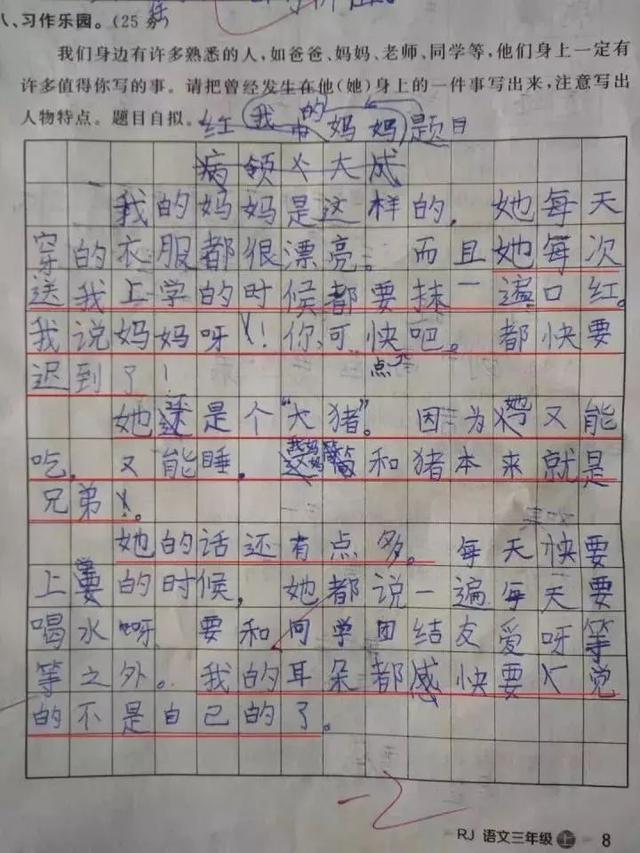 八、习作乐园。(25 分)
我们身边有许多熟悉的人,如爸爸、妈妈、老师、同学等,他们身上一定有
许多值得你写的事。请把曾经发生在他(她)身上的一件事写出来,注意写出
人物特点。题目自拟。
红 我的妈妈 题目
病领义大成
我的妈妈是这样的,她每天
穿的衣服都很漂亮。而且她每次
送我上学的时候都要抹一遍口红。
我说妈妈呀!你可快点吧。都快要
迟到了!
她还是个“大猪”。因为她又能
吃,又能睡,我妈妈简直和猪本来就是
兄弟。
她的话还有点多。每天快要
上学的时候,她都说一遍每天要
喝水呀 要和同学团结友爱呀等
等之外。我的耳朵都感快要觉
的不是自己的了。
RJ 语文三年级 上 8